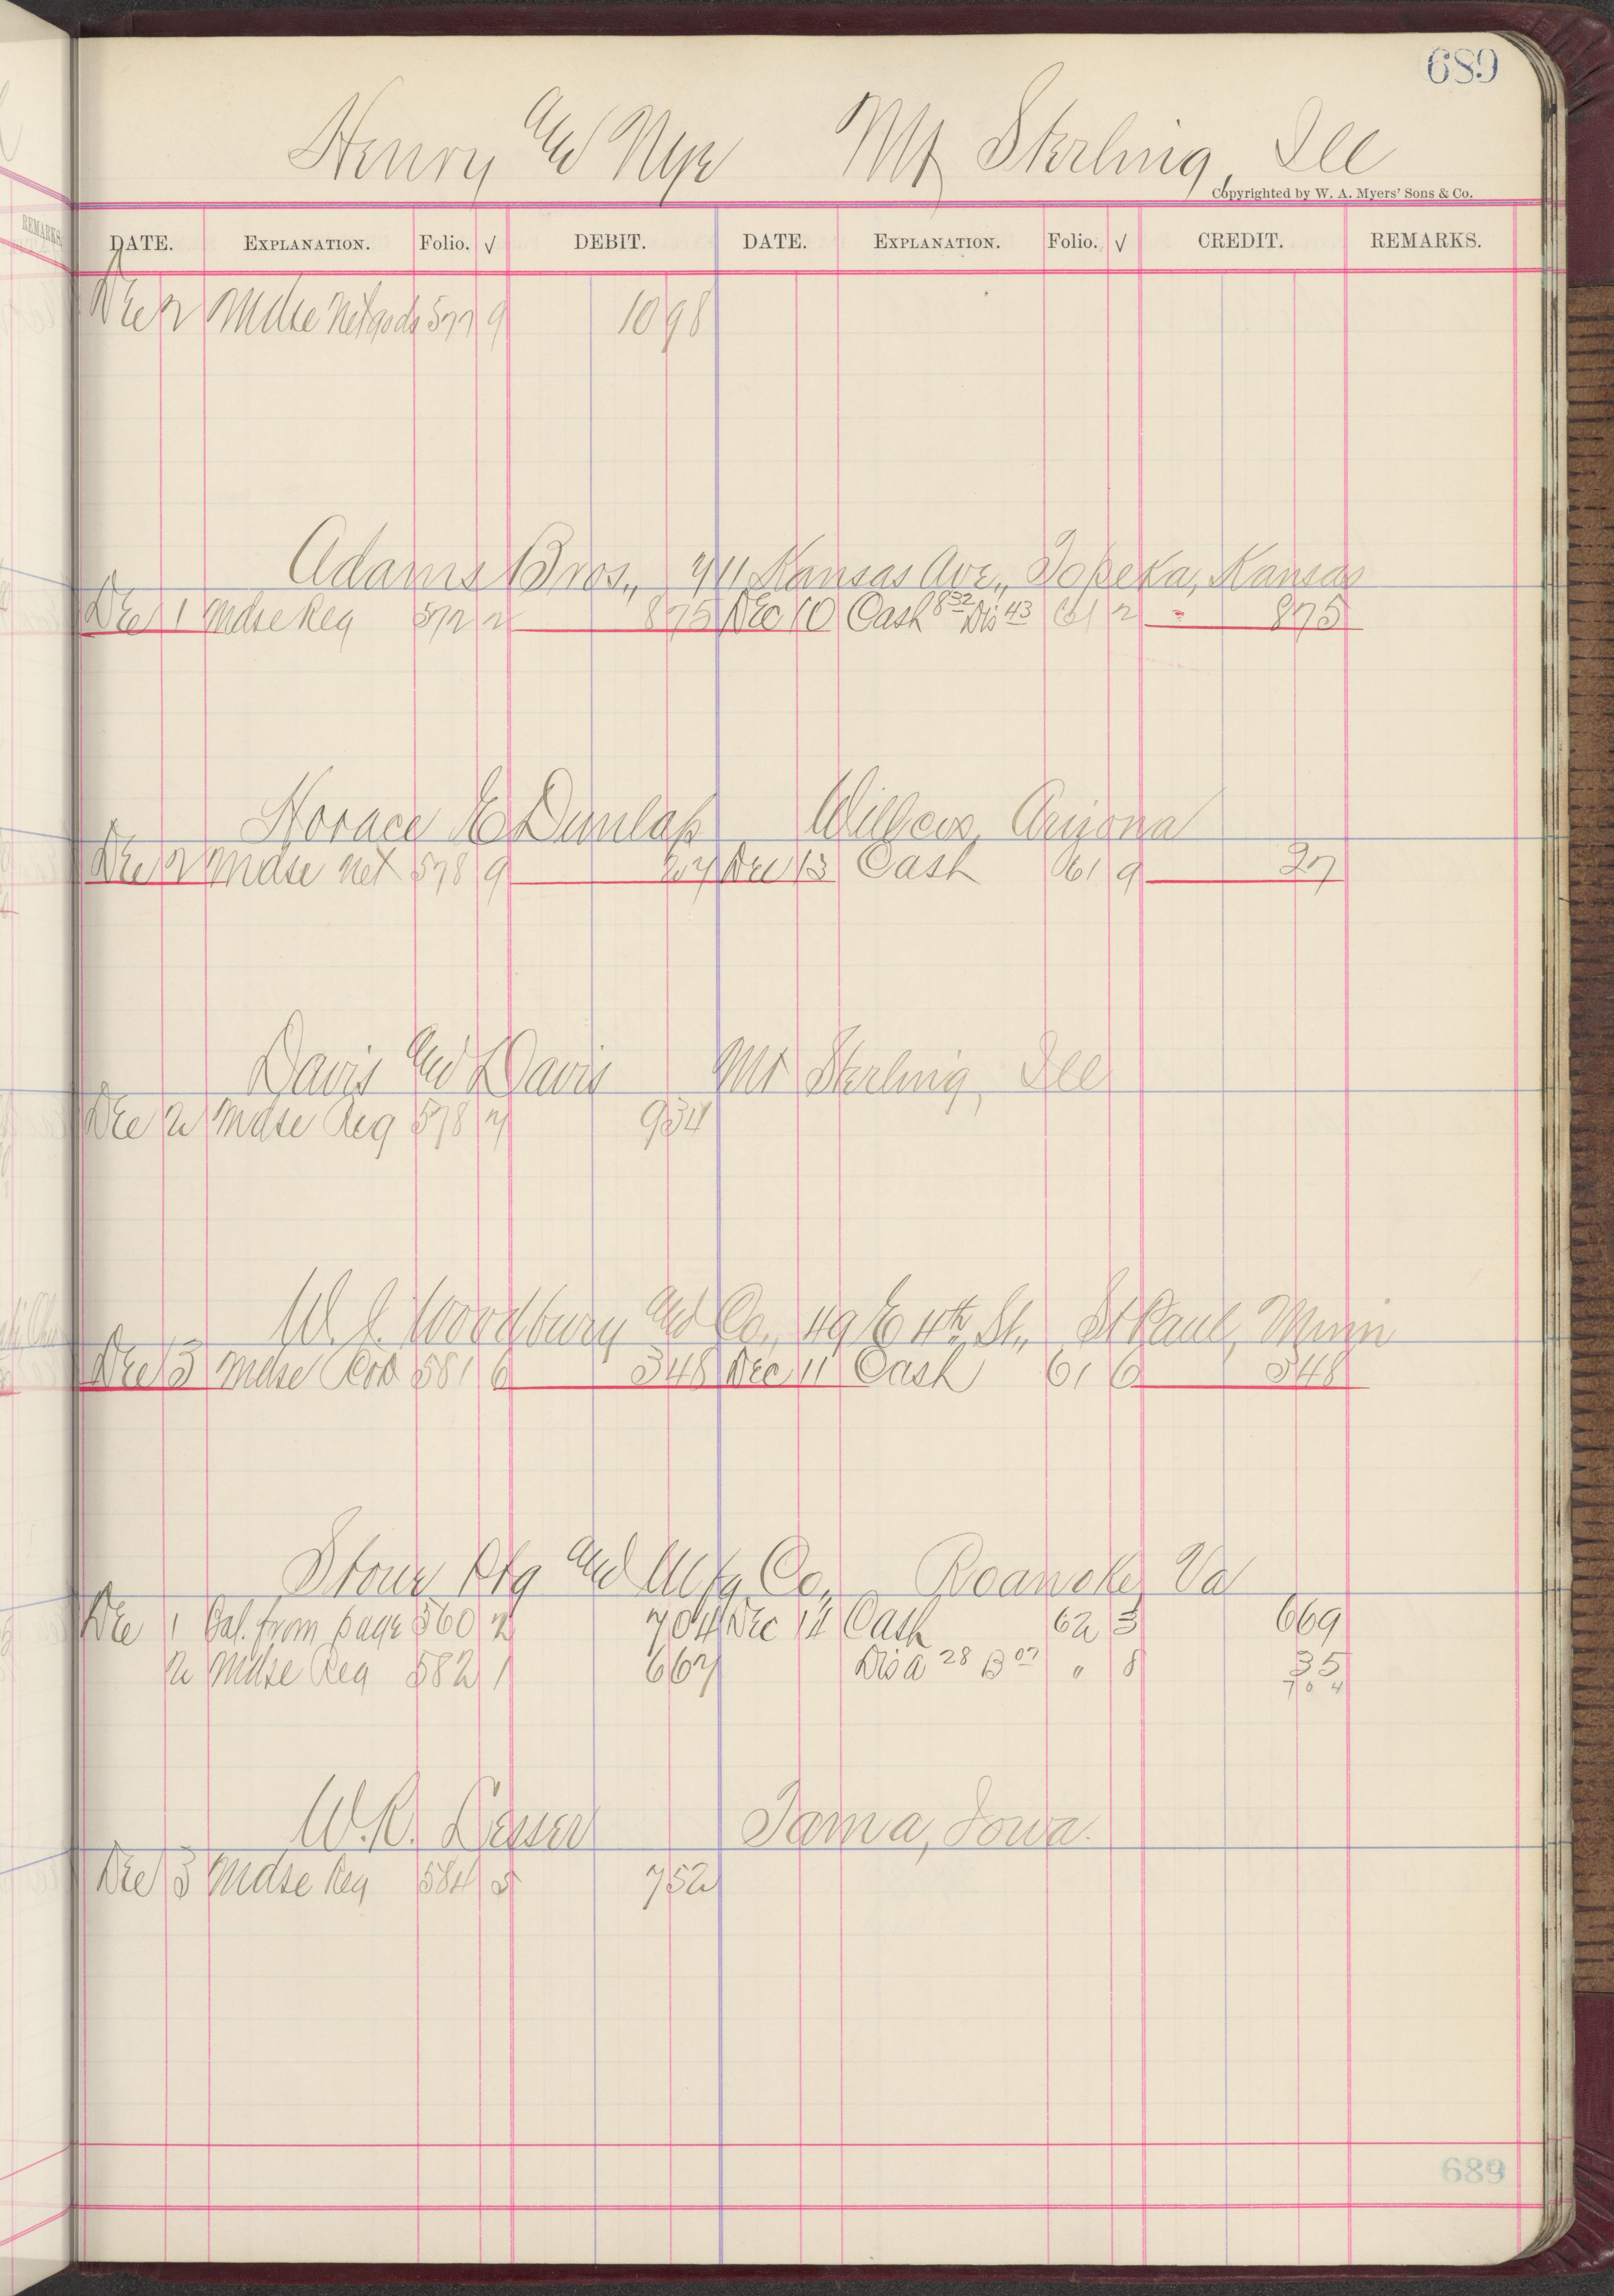 689
Henry and Nye Mt Sterling, Ill
Copyrighted by W. A. Myers' Sons & Co.
DATE. EXPLANATION. Folio. √ DEBIT. DATE. EXPLANATION. Folio. √ CREDIT. REMARKS.
Dec 2 Mdse Net gods 577 9 10 98
Adams Bros., 711 Kansas Ave., Topeka, Kansas
Dec 1 Mdse Reg 572 2 875 Dec 10 Cash 832 Dis 43 61 2 875
Horace E Dunlap Willcox, Arizona
Dec 2 Mdse Net 578 9 27 Dec 13 Cash 61 9 27
Davis and Davis Mt Sterling, Ill
Dec 2 Mdse Reg 578 7 934
W. J. Woodbury and Co., 49 E 4th St., St Paul, Minn
Dec 3 Mdse COD 581 6 348 Dec 11 Cash 61 6 348
Stone Ptg and Mfg Co., Roanoke, Va
Dec 1 Bal. from page 560 2 704 Dec 14 Cash 62 3 669
2 Mdse Reg 582 1 667 Dis A 28 B 07 " 8 35
704
W.R. Lesser Tama, Iowa.
Dec 3 Mdse Reg 584 5 752
689